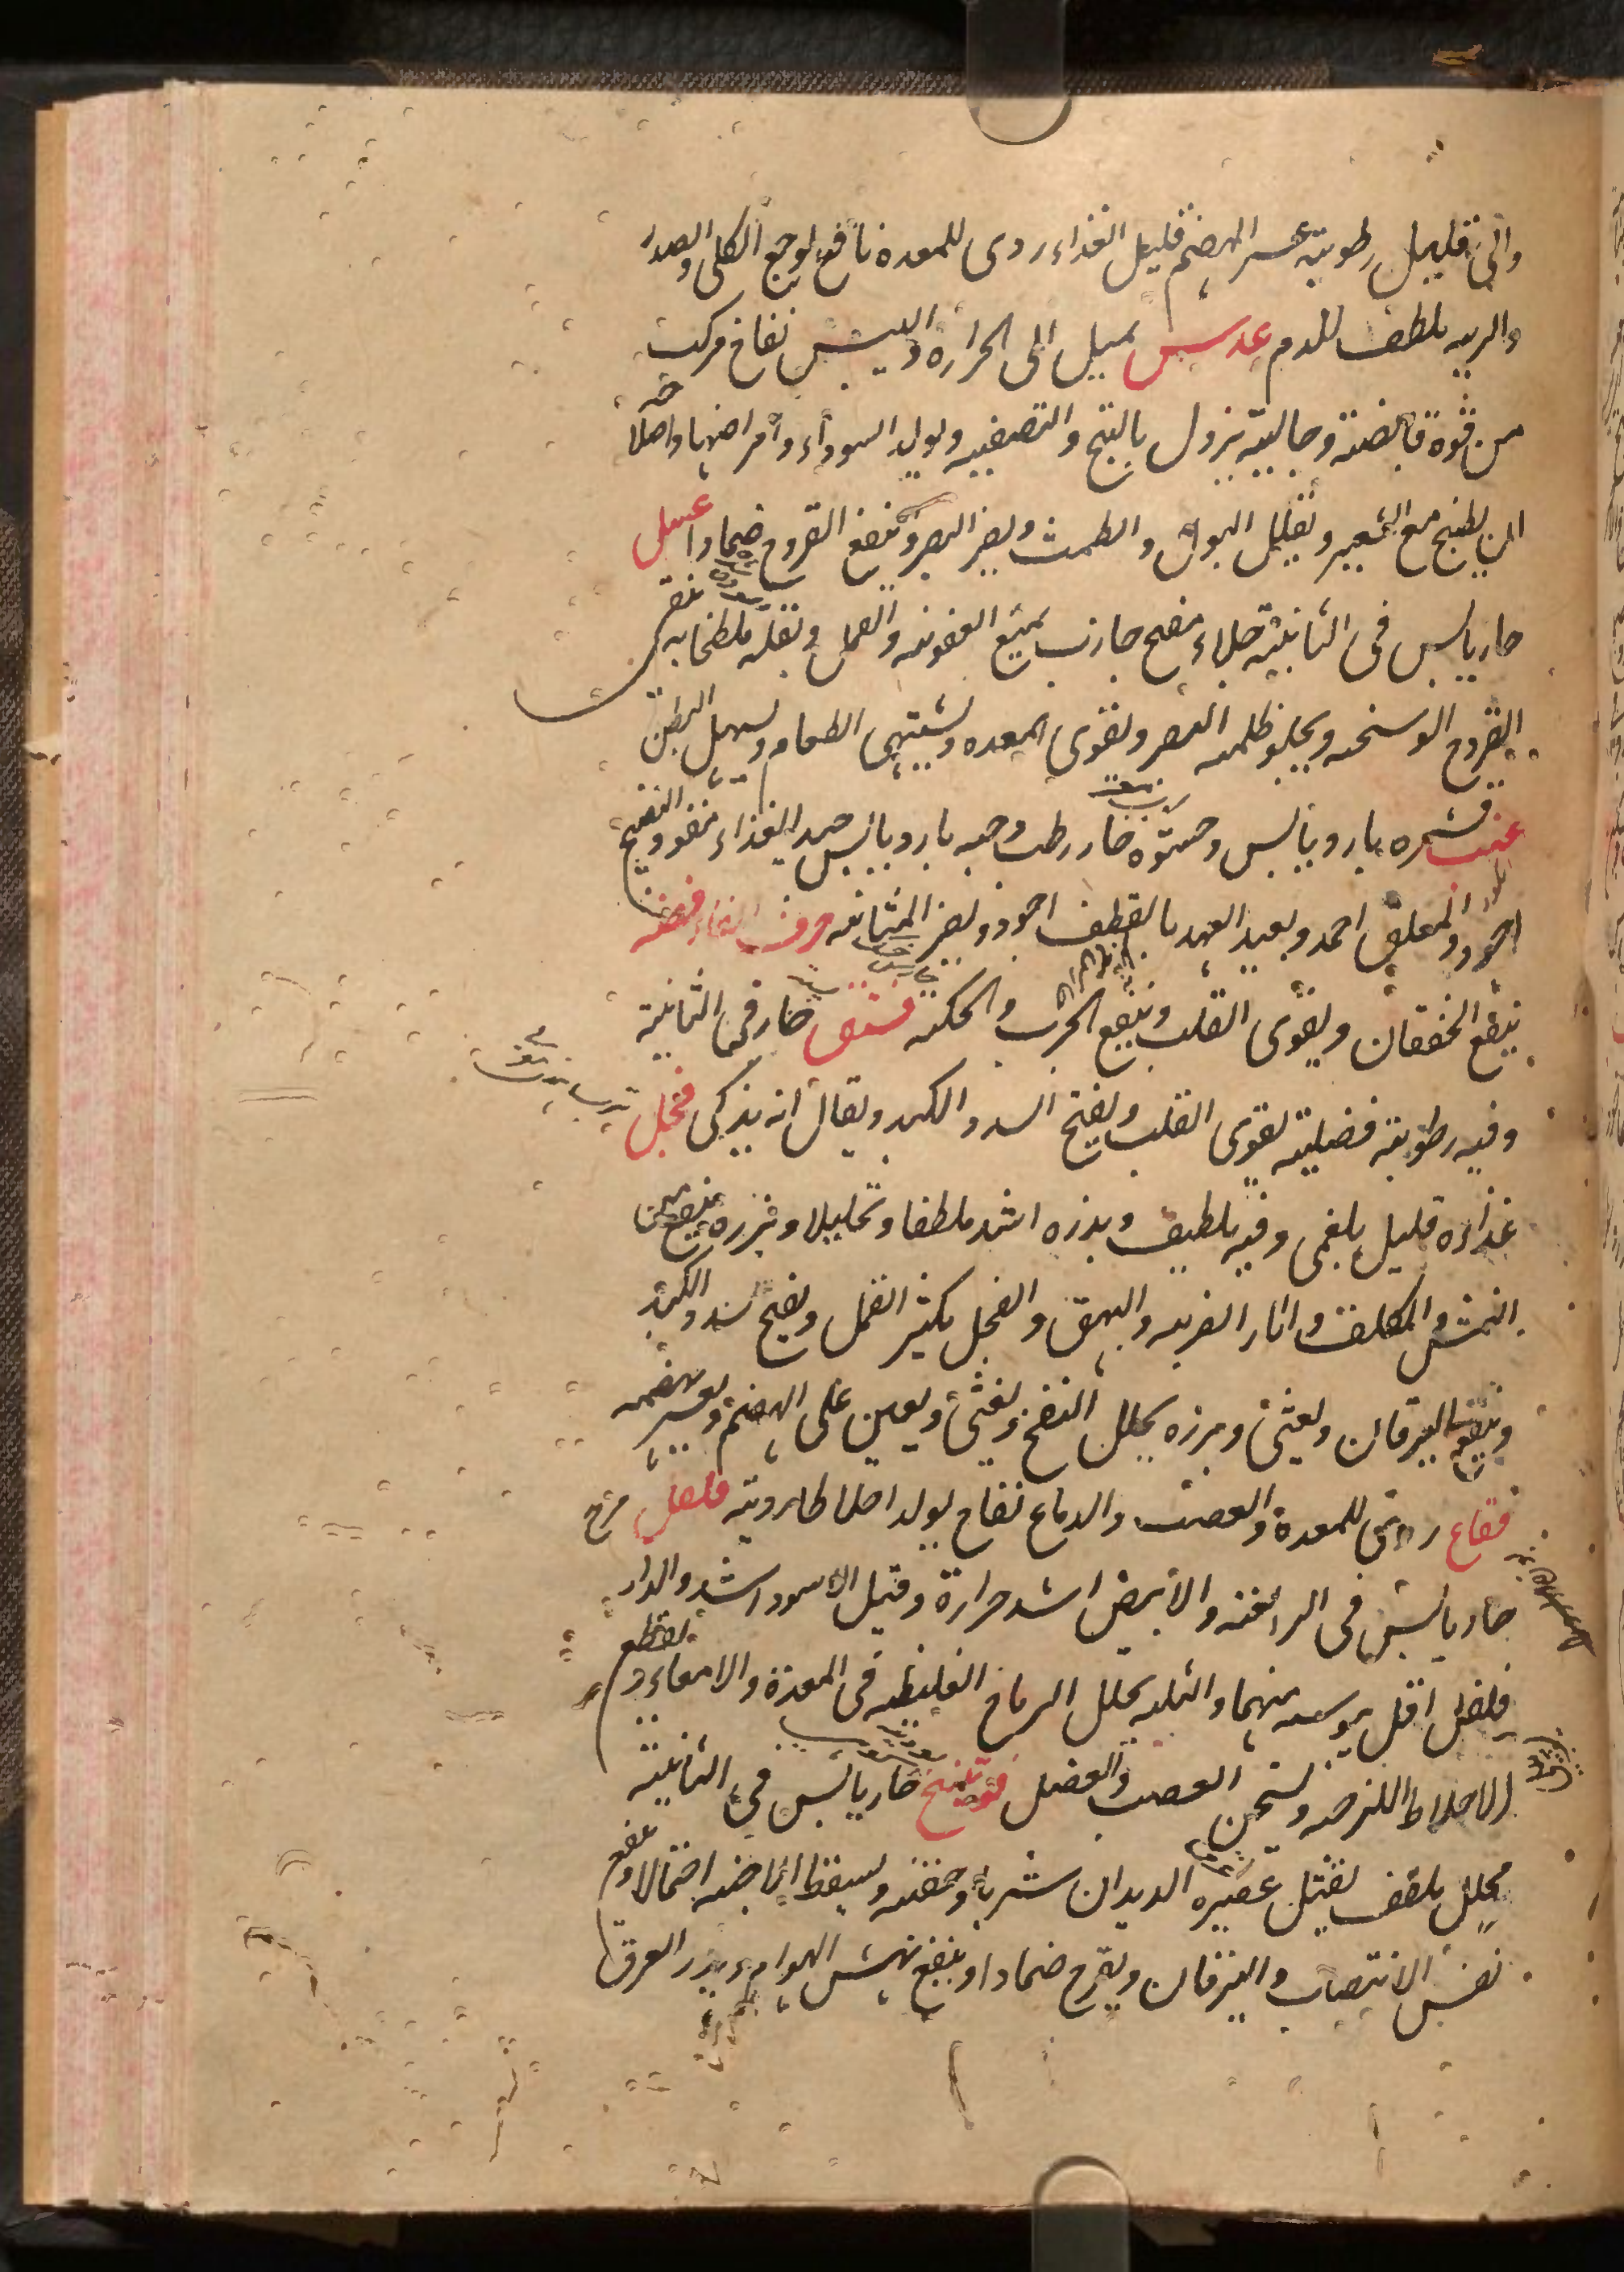 والی قلیل رطوبته عسر الهضم قلیل الغذاء ردی للمعدة نافع لوجع الکلی والصدر
والریه ملطف للدم عدس یمیل الی الحرارة والیبس نفاخ مرکب
من قوة قابضة وجالیة تزول بالتبخ والتصفیه ویولد السوداء وأمراضها واصلاحه
ان یطبخ مع الشعیر ویقلل البول والطمث ویضر البصر وینفع القروح ضمادا عسل
حار یابس فی الثانیة جلاء مفتح جاذب یمنع العفونه والقمل ویقتله ملطخا به ینقی
القروح الوسخه ویجلو ظلمه البصر ویقوی المعده ویشتهی الطعام ویسهل البطن
عنب قشره بارد یابس وحشوه حار رطب وحبه بارد یابس جید الغذاء مقو والنضیج
اجود والمعلق احمد وبعید العهد بالقطف اجود ویضر المثانه حرف الفاء فضه
ینفع الخفقان ویقوی القلب وینفع الجرب والحکه فستق حار فی الثانیة
وفیه رطوبة فضلیه یقوی القلب ویفتح السدد الکبد ویقال انه یذکی فجل
غذاءه قلیل بلغمی وفیه ملطیف وبذره اشد ملطفا وتحلیلا وبزره ینفع من
النمش والکلف واثار الضربه والبهق والفجل یکثر القمل ویفتح سدد الکبد
وینفع الیرقان ویغثی وبزره یحلل النفخ ویغثی ویعین علی الهضم ویعسر هضمه
فقاع ردی للمعدة والعصب والدماغ نفاخ یولد اخلاطا ردیة فلفل
حار یابس فی الرابعه والابیض اشد حرارة وقیل الاسود اشد والدار
فلفل اقل یبوسه منهما والثلثه یحلل الریاح الغلیظه فی المعدة والامعاء ویقطع
الاخلاط اللزجه ویسخن العصب والعضل فوتنج حار یابس فی الثانیة
محلل ملطف یقتل عصیره الدیدان شربا وحقنه ویسقط الاجنه احتمالا وینفع
نفس الانتصاب والیرقان ویقرح ضمادا وینفع نهش الهوام ویدر العرق